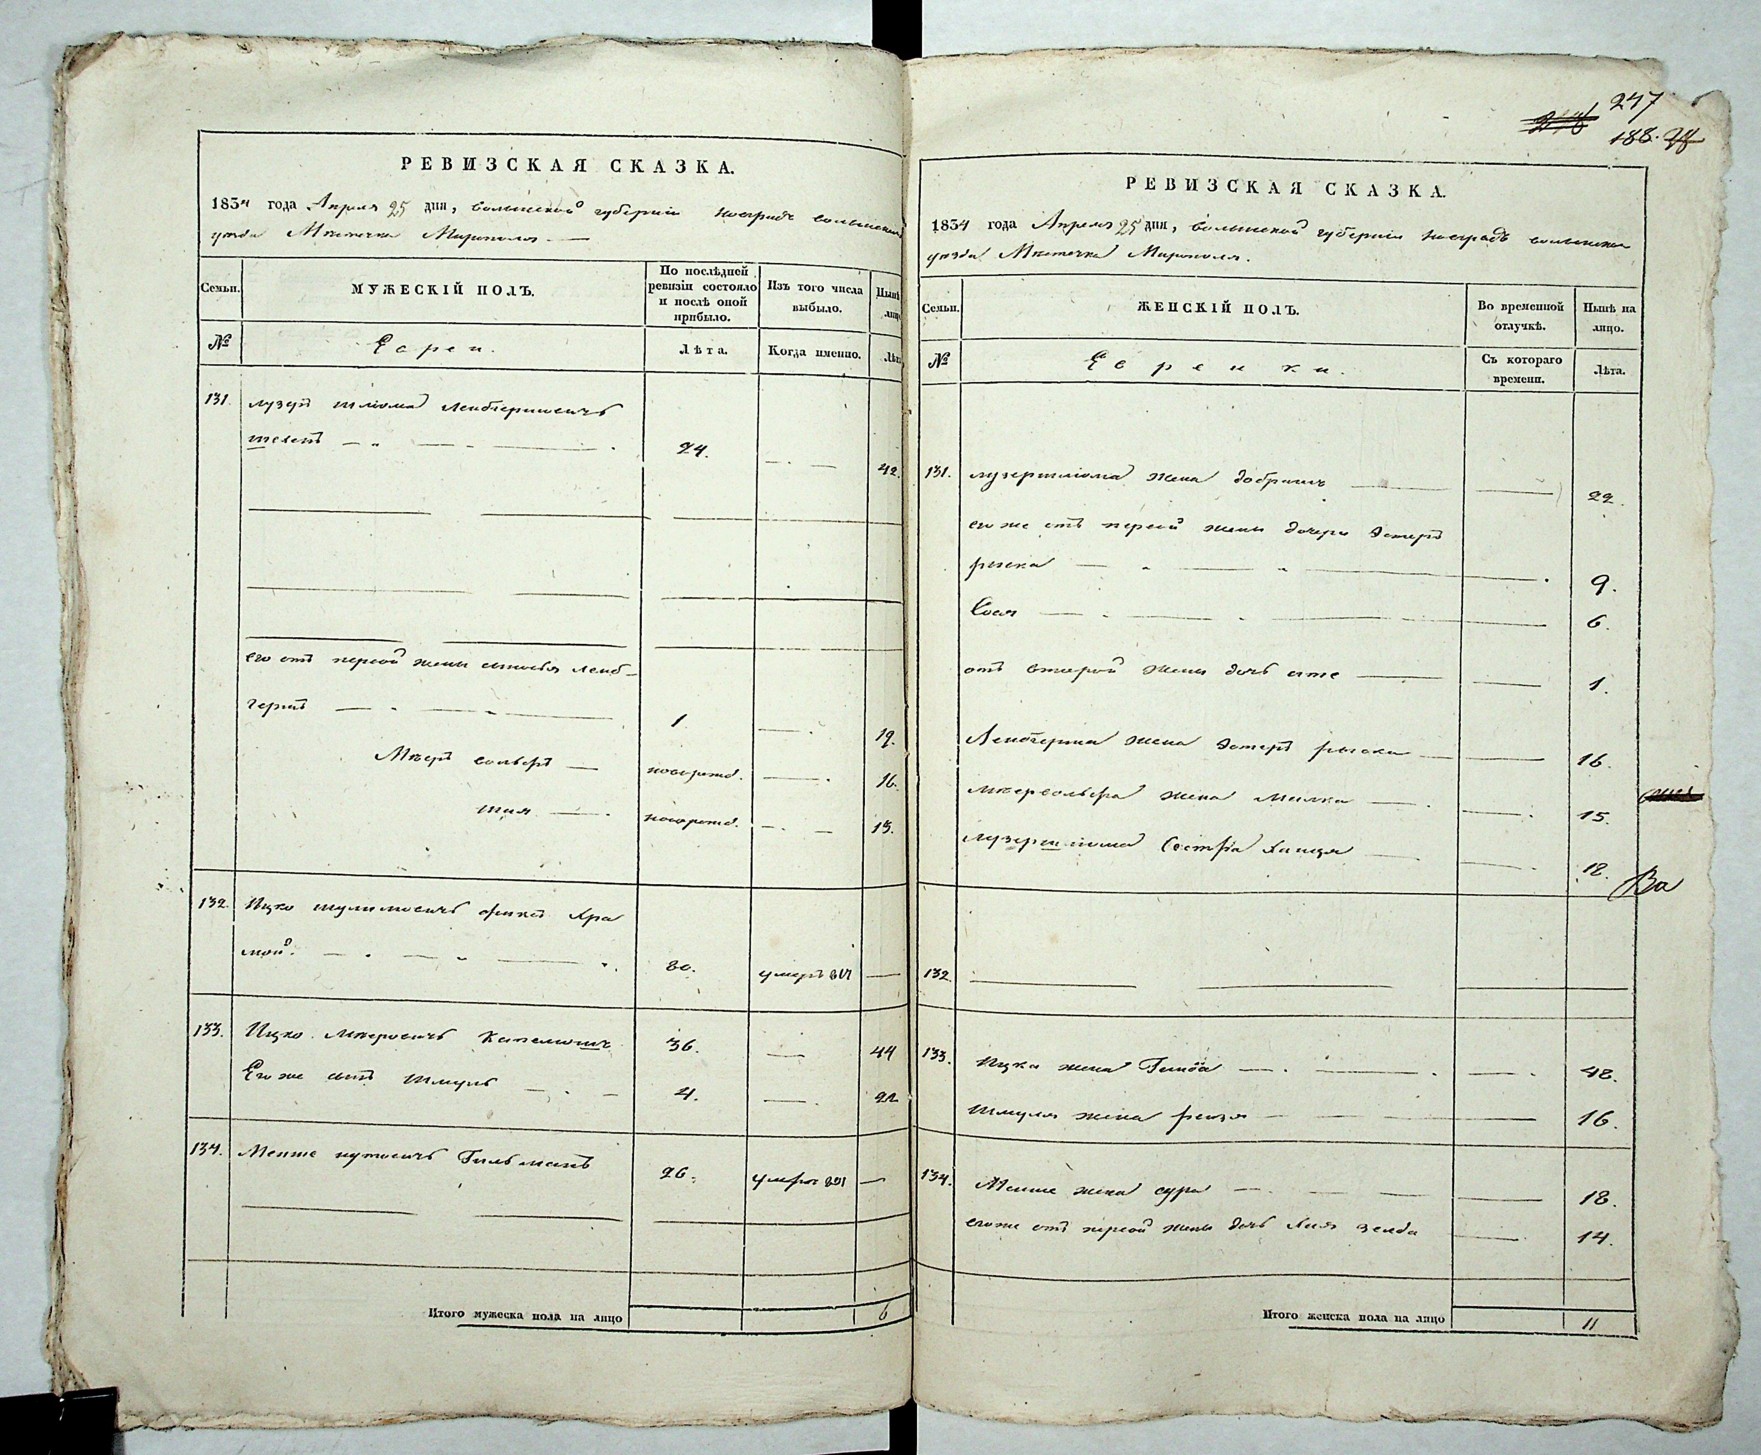 РЕВИЗСКАЯ СКАЗКА.
1834 года Апреля 25 дня, волынской губернiи новградъ волынскаго
уезда Местечка Мирополя
Семьи.
МУЖЕСКIЙ ПОЛЪ.
По послѣдней ревизiи состояло и послѣ оной прибыло.
Изъ того числа выбыло.
Нынѣ
лицо
№
Евреи.
Лѣта.
Когда именно.
Лѣта
131.
лузеръ шлiома Лейбгершковичъ
24.
42.
его отъ первой жены сыновья Лейб-
гершъ
1
19.
Меер вольфъ
новорожд.
16.
шая
новорожд.
13.
132.
Ицко шулимовичъ Хра
мой.
80.
умеръ
133.
Ицко Мееровичъ
36.
44
Его же сынъ Шмуль
4.
22
134.
Менше нутовичъ Гильманъ
26.
умръ 831
Итого мужеска пола на лицо
6
247
188.
РЕВИЗСКАЯ СКАЗКА.
1834 года Апреля 25 дня, волынской губернiи новградъ волынскаго
уезда Местечка Мирополя.
Семьи.
ЖЕНСКIЙ ПОЛЪ.
Во временной отлучкѣ.
Нынѣ на лицо.
№
Еврейки.
Съ котораго времени.
Лѣта.
131.
лузершлiома жена добришъ
22.
его же отъ первой жены дочери Эстеръ
рыска
9.
6.
отъ второй жены дочь
1.
Лейбгерша жена Эстеръ рыска
16.
меервольфа жена Милка
15.
лузершлiома Сестра
18.
132
133.
Ицка жена
48.
Шмуля жена
16.
134.
Менше жена сура
18.
его же отъ первой жены дочь зелда
14.
Итого женска пола на лицо
11